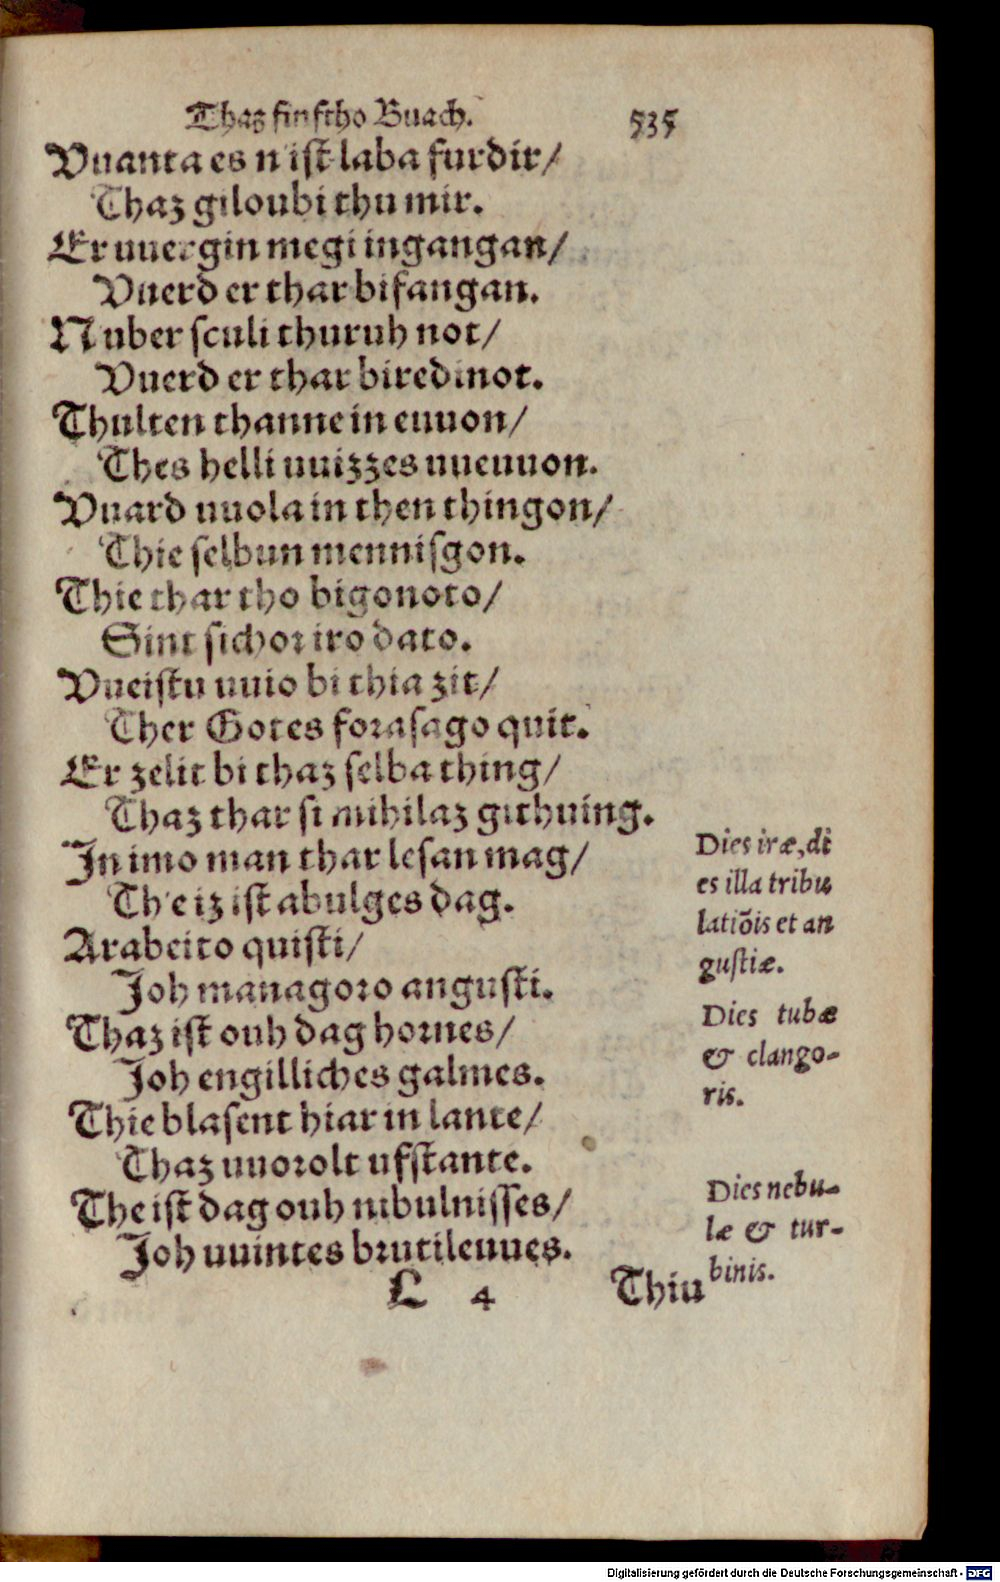 Thaz finftho Buach. 535
Vuanta es n'ist laba furdir/
Thaz giloubi thu mir.
Er uuergin megi ingangan/
Vuerd er thar bifangan.
Nuber sculi thuruh not/
Vuerd er thar biredinot.
Thulten thanne in euuon/
Thes helli uuizzes uueuuon.
Vuard uuola in then thingon/
Thie selbun mennisgon.
Thie thar tho bigonoto/
Sint sichor iro dato.
Vueistu uuio bi thia zit/
Ther Gotes forasago quit.
Er zelit bi thaz selba thing/
Thaz thar si mihilaz githuing.
In imo man thar lesan mag/
Theiz ist abulges dag.
Arabeito quisti/
Joh managoro angusti.
Thaz ist ouh dag hornes/
Joh engilliches galmes.
Thie blasent hiar in lante/
Thaz uuorolt ufstante.
The ist dag ouh nibulnisses/
Joh uuintes brutileuues.
L 4 Thiu
Dies iræ, di
es illa tribu
latiõis et an
gustiæ.
Dies tubæ
& clango-
ris.
Dies nebu-
læ & tur-
binis.
Digitalisierung gefördert durch die Deutsche Forschungsgemeinschaft - DFG